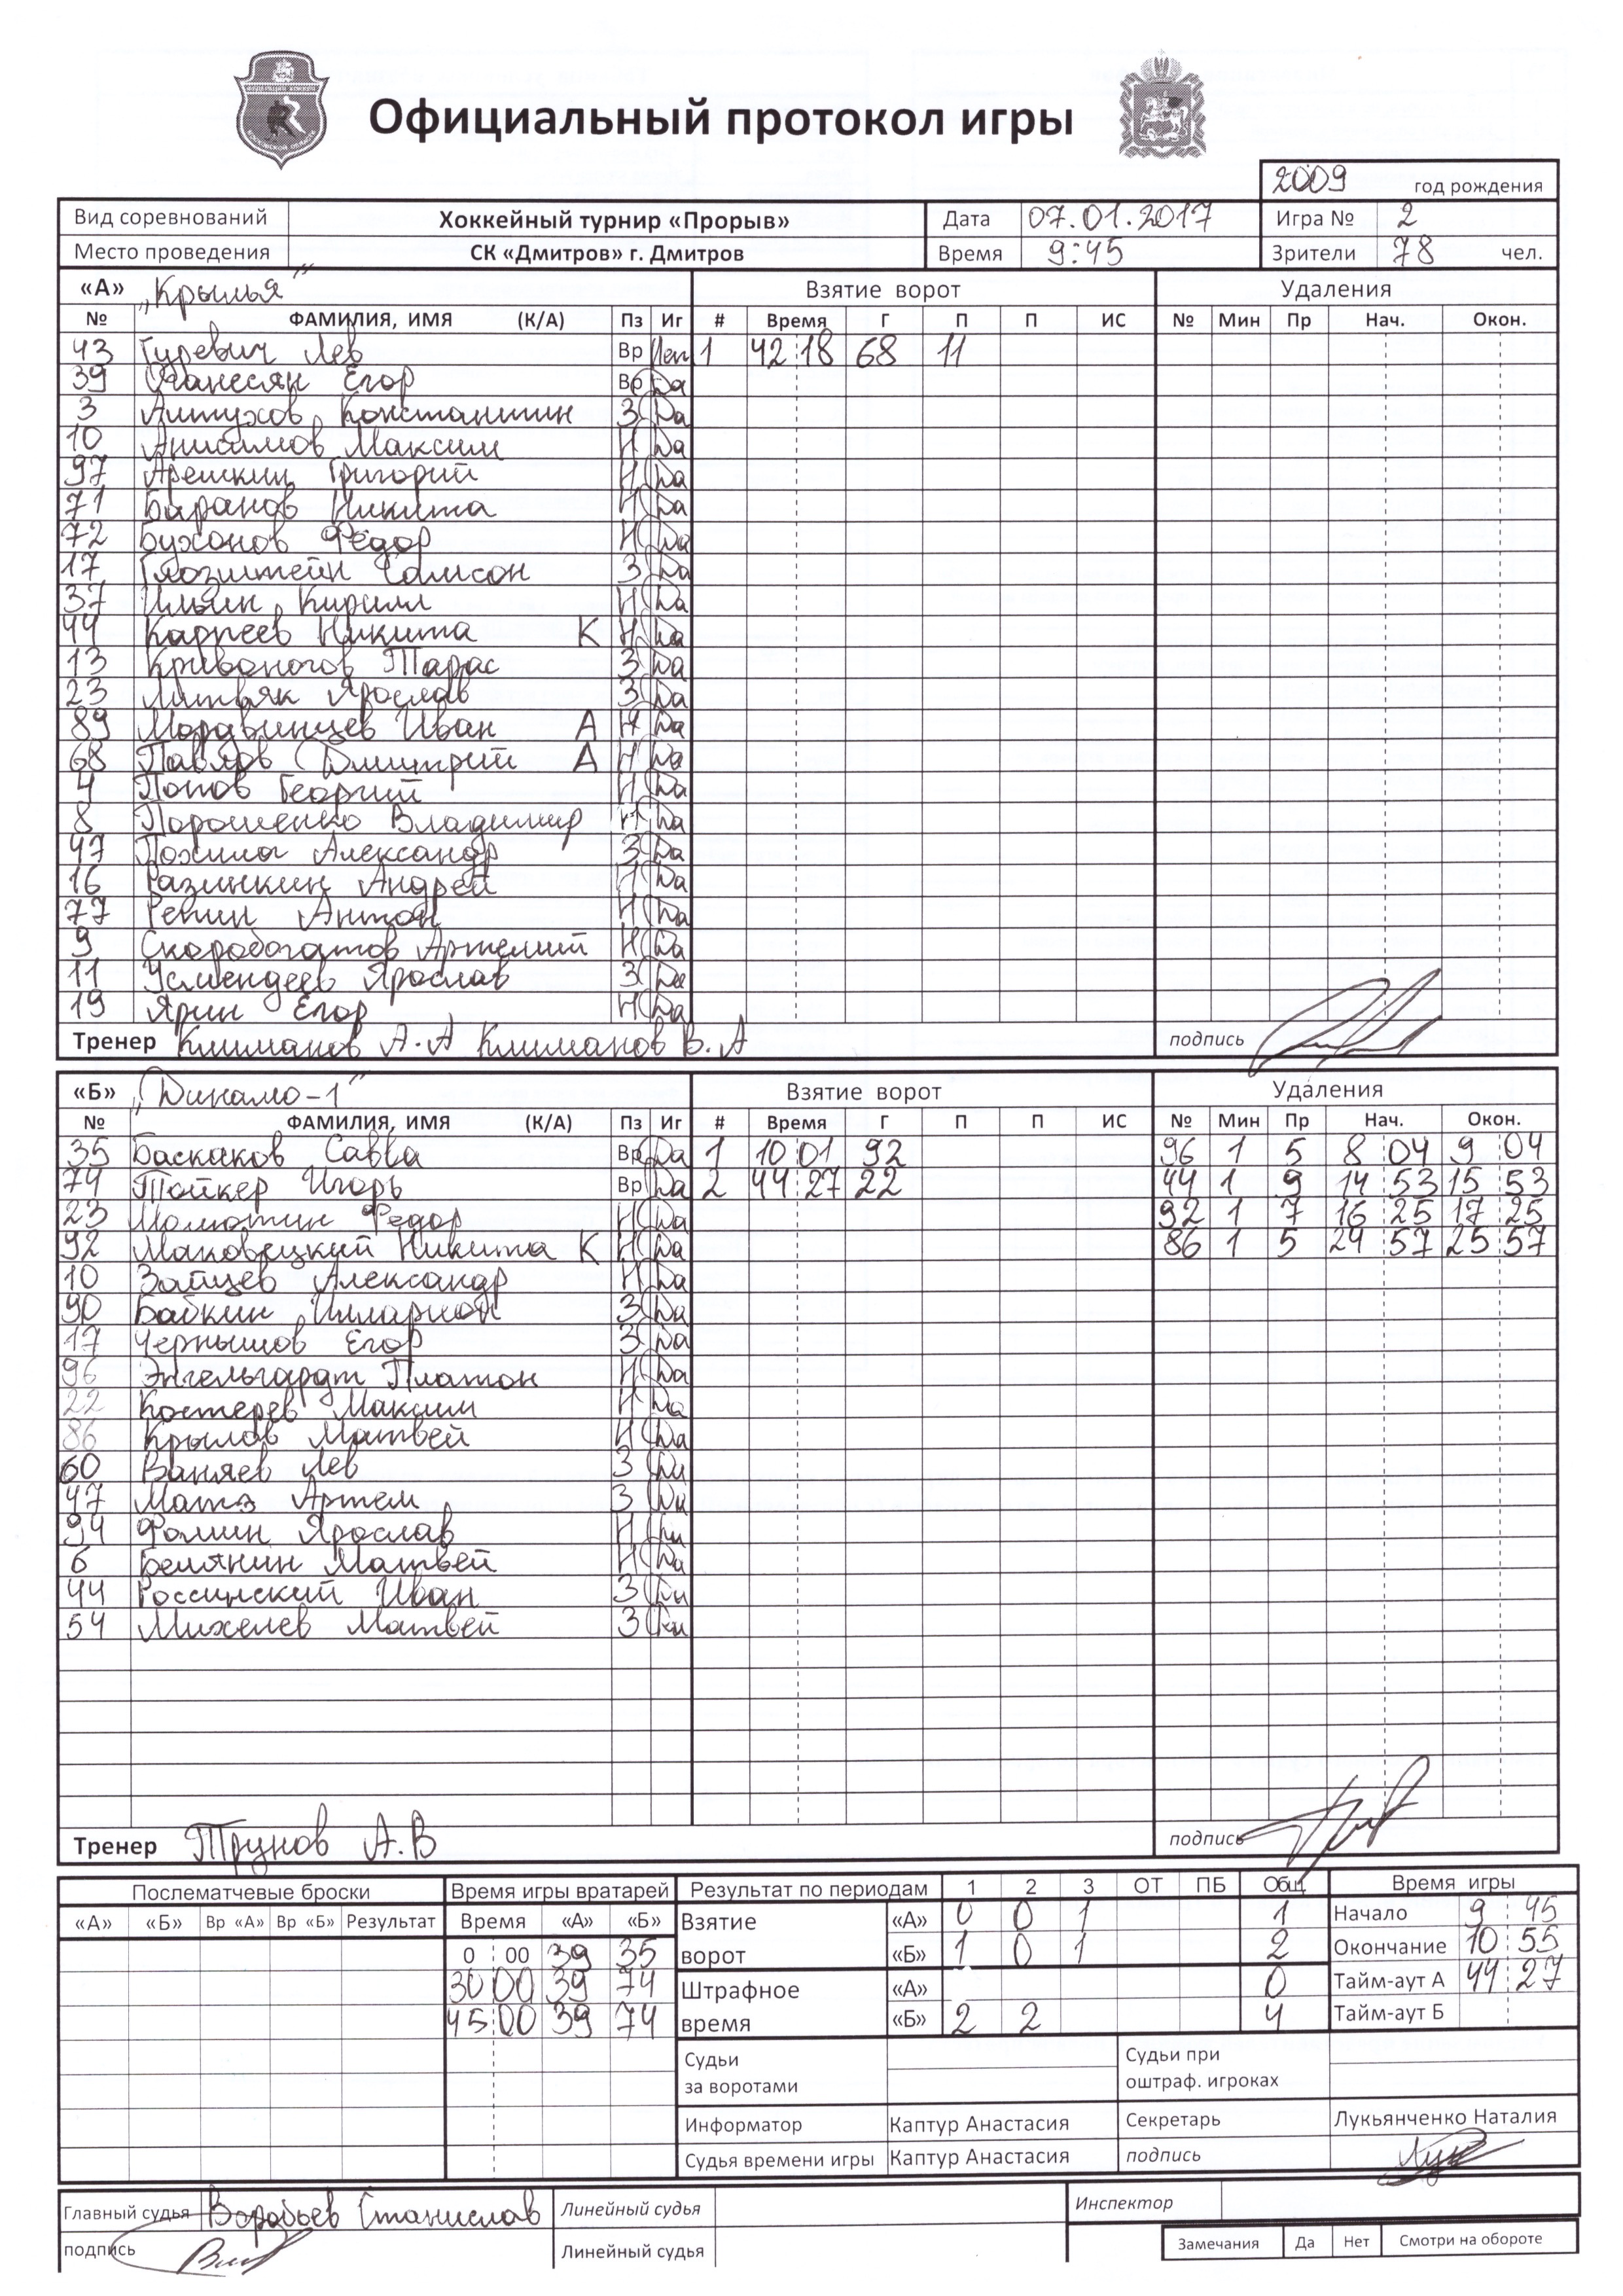 Официальный протокол игры
2009 год рождения
Вид соревнований Хоккейный турнир «Прорыв» Дата 07.01.2017 Игра № 2
Место проведения СК «Дмитров» г. Дмитров Время 9:45 Зрители 78 чел.
«А» „Крылья" Взятие ворот Удаления
№ ФАМИЛИЯ, ИМЯ (К/А) Пз Иг # Время Г П П ИС № Мин Пр Нач. Окон.
43 Гуревич Лев Вр 1 42 18 68 11
39 Оганесян Егор Вр Да
3 Алтухов Константин З Да
10 Анисимов Максим Н Да
97 Арешкин Григорий Н Да
71 Баранов Никита Н Да
72 Буханов Фёдор Н Да
17 Глозштейн Самсон З Да
37 Ильин Кирилл Н Да
44 Карпеев Никита К Н Да
13 Кривоногов Тарас З Да
23 Литвяк Ярослав З Да
89 Мордвинцев Иван А Н Да
68 Павлов Дмитрий А Н Да
4 Попов Георгий Н Да
8 Порошенко Владимир Н Да
47 Похила Александр З Да
16 Разинкин Андрей Н Да
77 Репин Антон Н Да
9 Скоробогатов Артемий Н Да
11 Усмендеев Ярослав З Да
19 Ярин Егор Н Да
Тренер Климанов А.А Климанов В.А подпись
«Б» „Динамо-1" Взятие ворот Удаления
№ ФАМИЛИЯ, ИМЯ (К/А) Пз Иг # Время Г П П ИС № Мин Пр Нач. Окон.
35 Баскаков Савва Вр Да 1 10 01 92 96 1 5 8 04 9 04
74 Тойкер Игорь Вр Да 2 44 27 22 44 1 9 14 53 15 53
23 Молютин Федор Н Да 92 1 7 16 25 17 25
92 Маковецкий Никита К Н Да 86 1 5 24 57 25 57
10 Зайцев Александр Н Да
90 Бабкин Илларион З Да
17 Чернышов Егор З Да
96 Энгельгардт Платон Н Да
22 Костерев Максим Н Да
86 Крылов Матвей Н Да
60 Ваняев Лев З Да
47 Матэ Артем З Да
94 Фомин Ярослав Н Да
6 Белянин Матвей Н Да
44 Россинский Иван З Да
54 Михелев Матвей З Да
Тренер Трунов А.В подпись
Послематчевые броски Время игры вратарей Результат по периодам 1 2 3 ОТ ПБ Общ Время игры
«А» «Б» Вр «А» Вр «Б» Результат Время «А» «Б» Взятие «А» 0 0 1 1 Начало 9 45
0 00 39 35 ворот «Б» 1 0 1 2 Окончание 10 55
30 00 39 74 Штрафное «А» 0 Тайм-аут А 44 27
45 00 39 74 время «Б» 2 2 4 Тайм-аут Б
Судьи за воротами Судьи при оштраф. игроках
Информатор Каптур Анастасия Секретарь Лукьянченко Наталия
Судья времени игры Каптур Анастасия подпись
Главный судья Воробьев Станислав Линейный судья Инспектор
подпись Линейный судья Замечания Да Нет Смотри на обороте